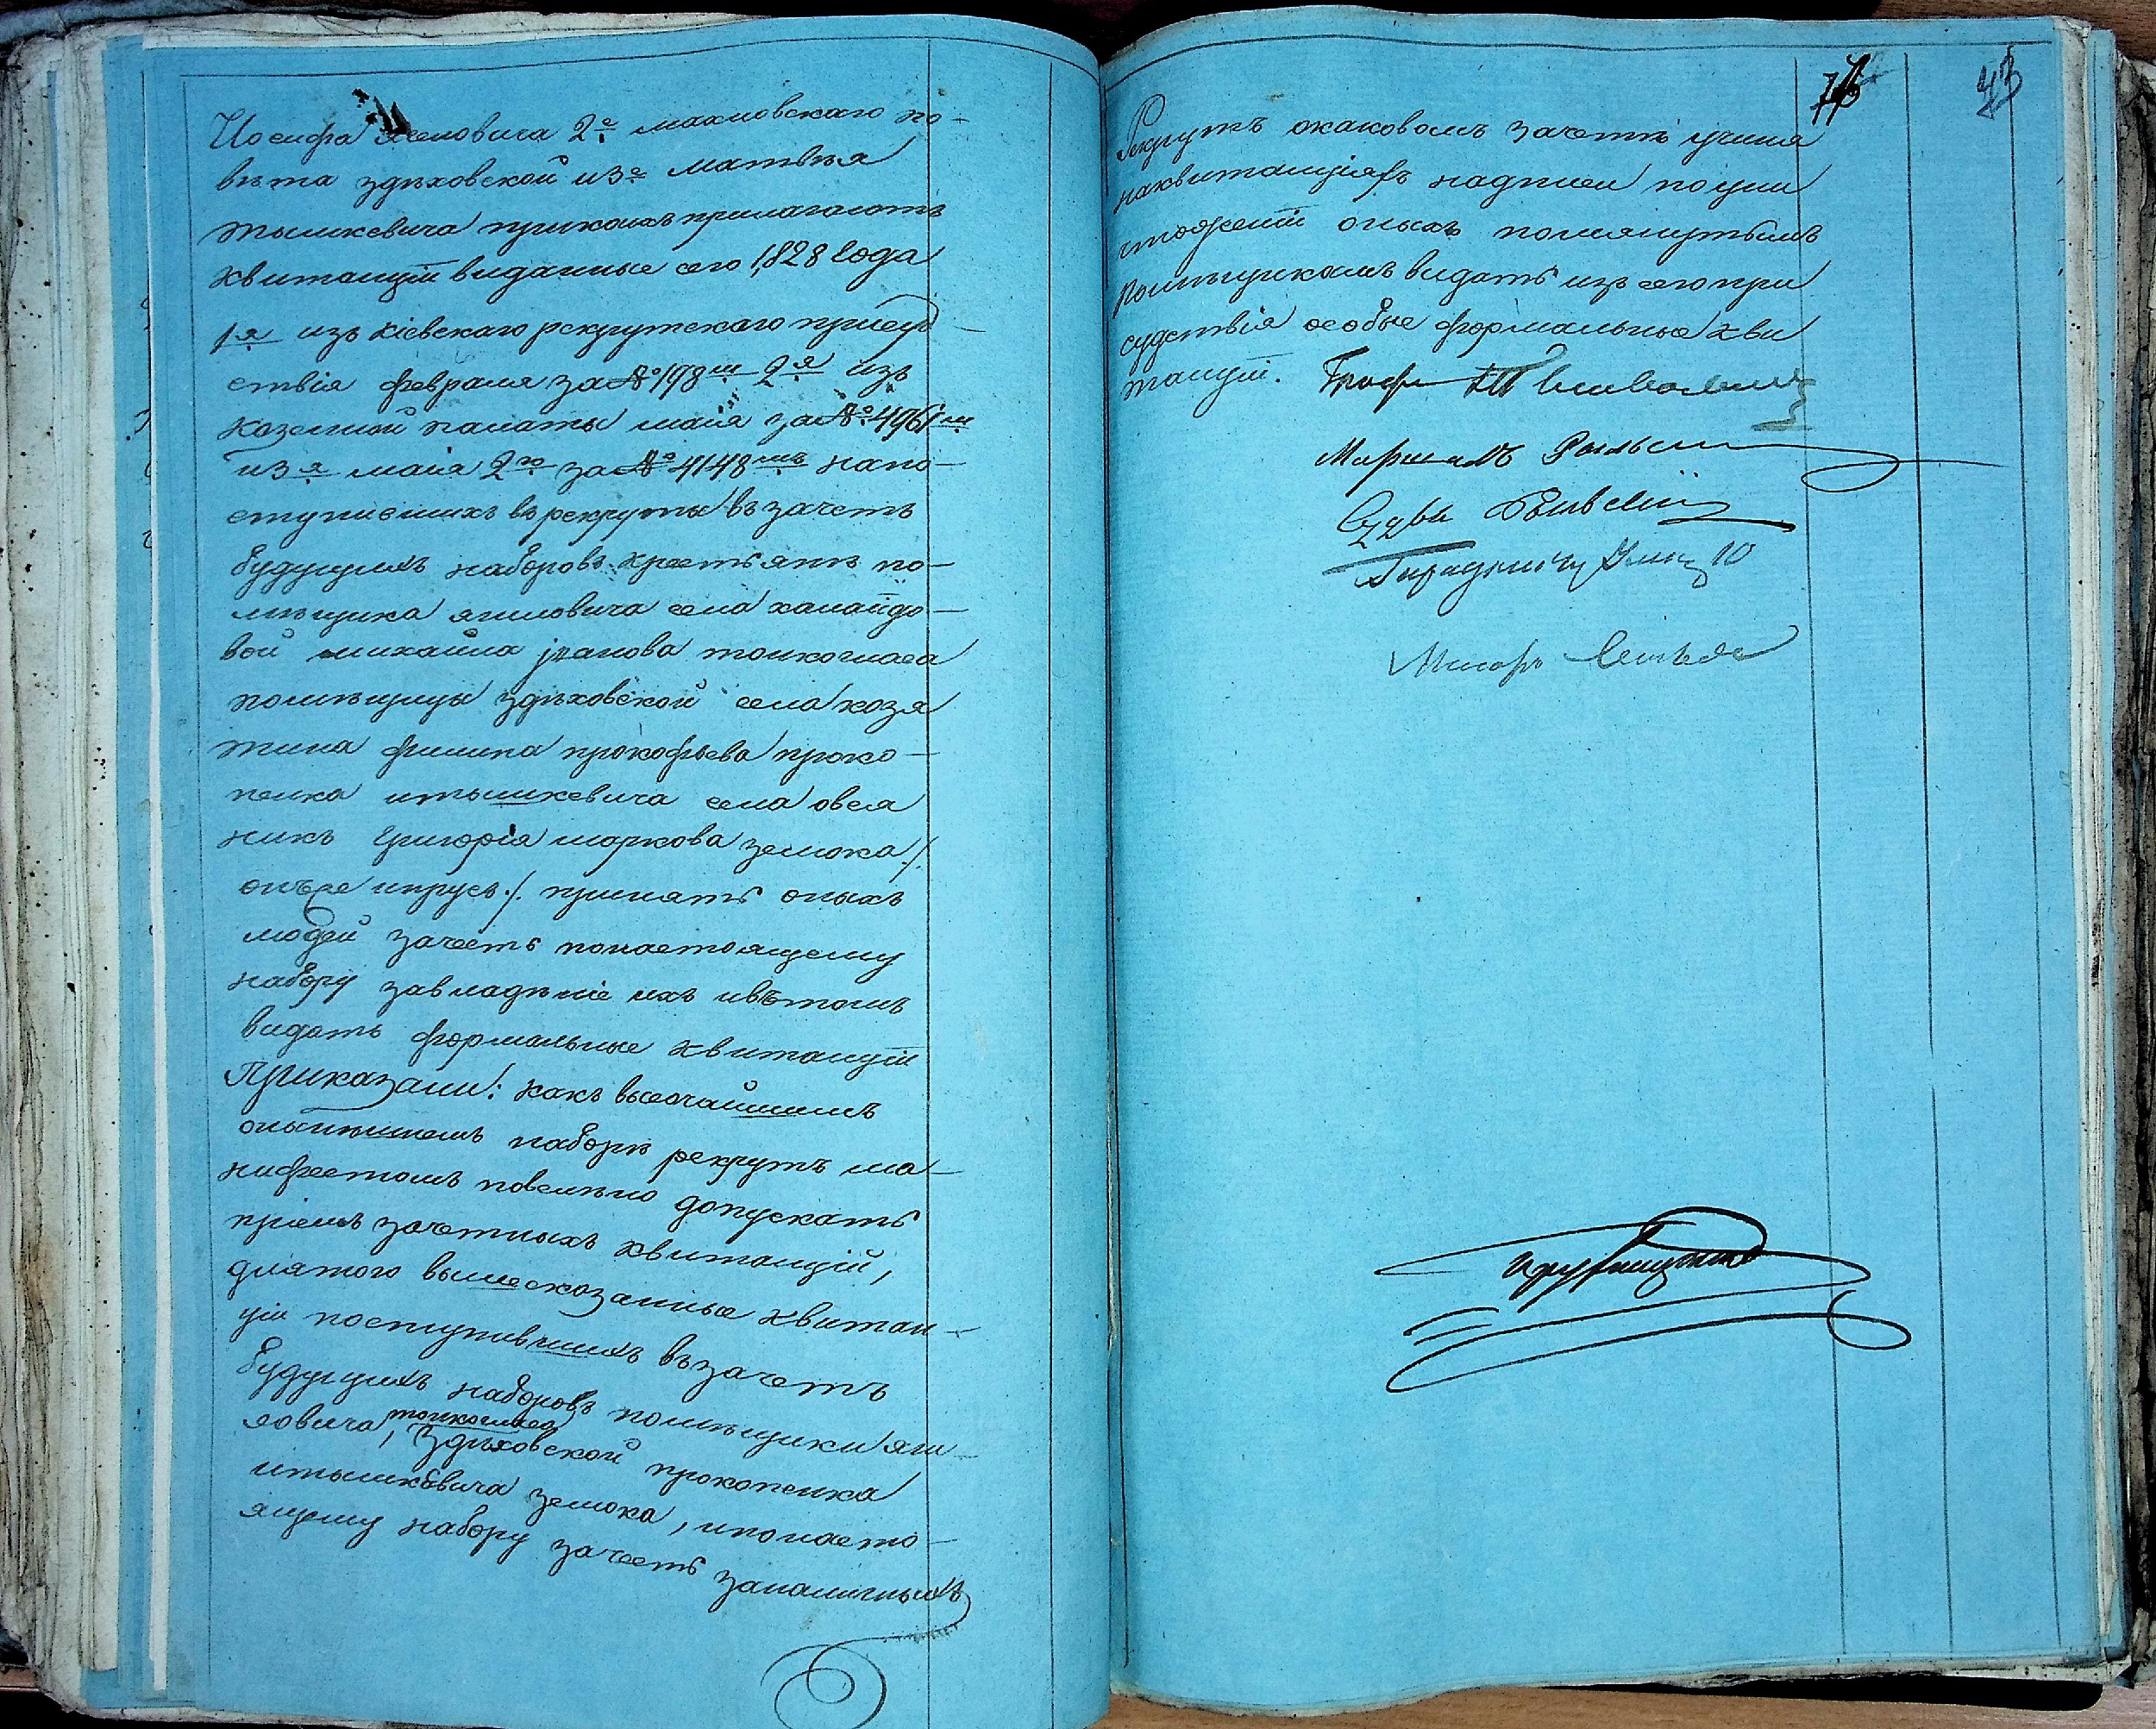 Иосифа 2е махновскаго по-
вѣта здѣховской и 3е Матвѣя
тышкевича при коихъ прилагаютъ
квитанціи виданные сего 1828 года
1я изъ кіевскаго рекрутскаго присуд-
ствія февраля за № 198м 2я изъ
казенной палаты мая за № 4961м
и 3я мая 2го за № 4148мъ на по-
ступившихъ в рекруты въ зачетъ
будущихъ наборовъ крестьянъ по-
мѣщика села халаидо-
вой михайла иванова тонкогласа
помѣщицы здѣховской села козя
тина филипа прокофьева проко-
пенка и тышкевича села овся
никъ григорія маркова земока /.
онъ же ипрусъ ./. принять оныхъ
людей зачесть по настоящему
набору за владѣніе ихъ и въ томъ
видать формальные квитанціи
Приказали: какъ высочайшимъ
о нынѣшнемъ наборѣ рекрутъ ма-
нифестомъ повелѣно допускать
пріемъ зачетныхъ квитанцій,
для того вышесказанные квитан-
ціи поступившихъ въ зачетъ
будущихъ наборовъ помѣщики яги
ловича, тонкогласа Здѣховской прокопенка
и тышкевича земока, и по насто-
ящему набору зачесть за наличныхъ
43
Рекрутъ о каковомъ зачетѣ учиня
на квитанціяхъ надписи по уни
чтоженіи оныхъ помянутымъ
помѣщикамъ видать изъ сего при
судствія особые формальные кви
танціи. Графъ
Маршалъ
Судья
Маіоръ